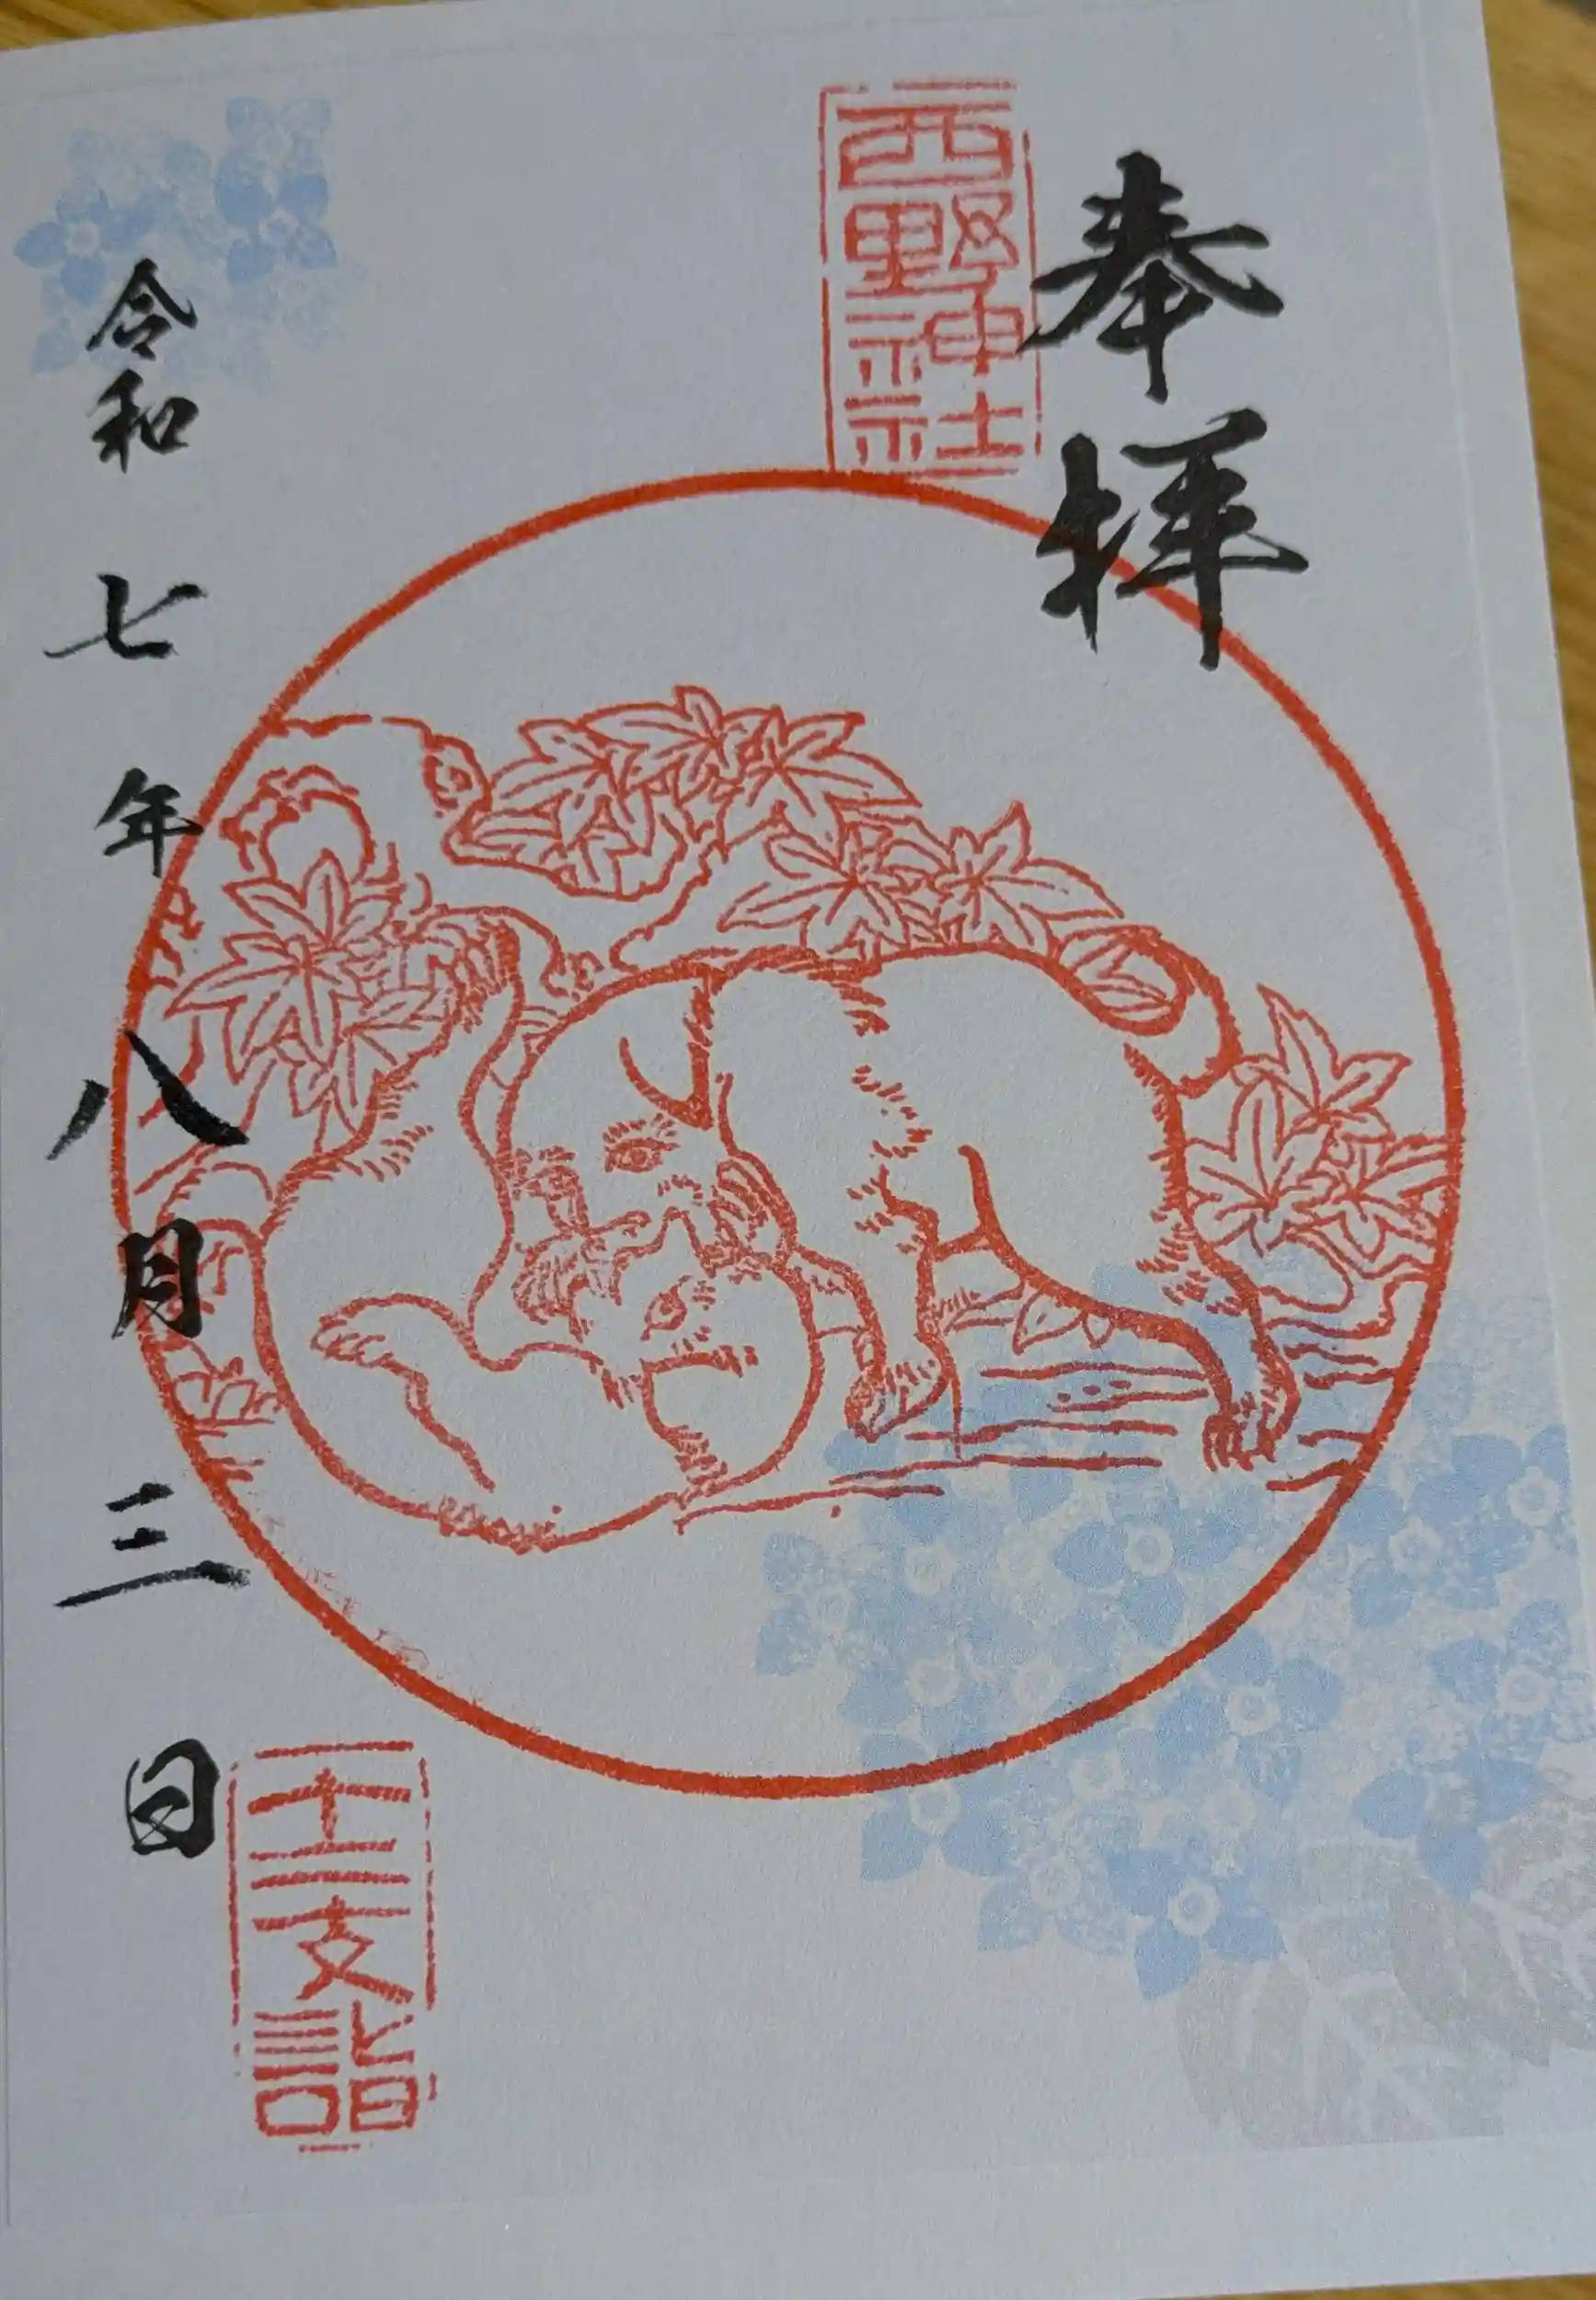 奉拝
西野神社
令和七年八月三日
十二支詣